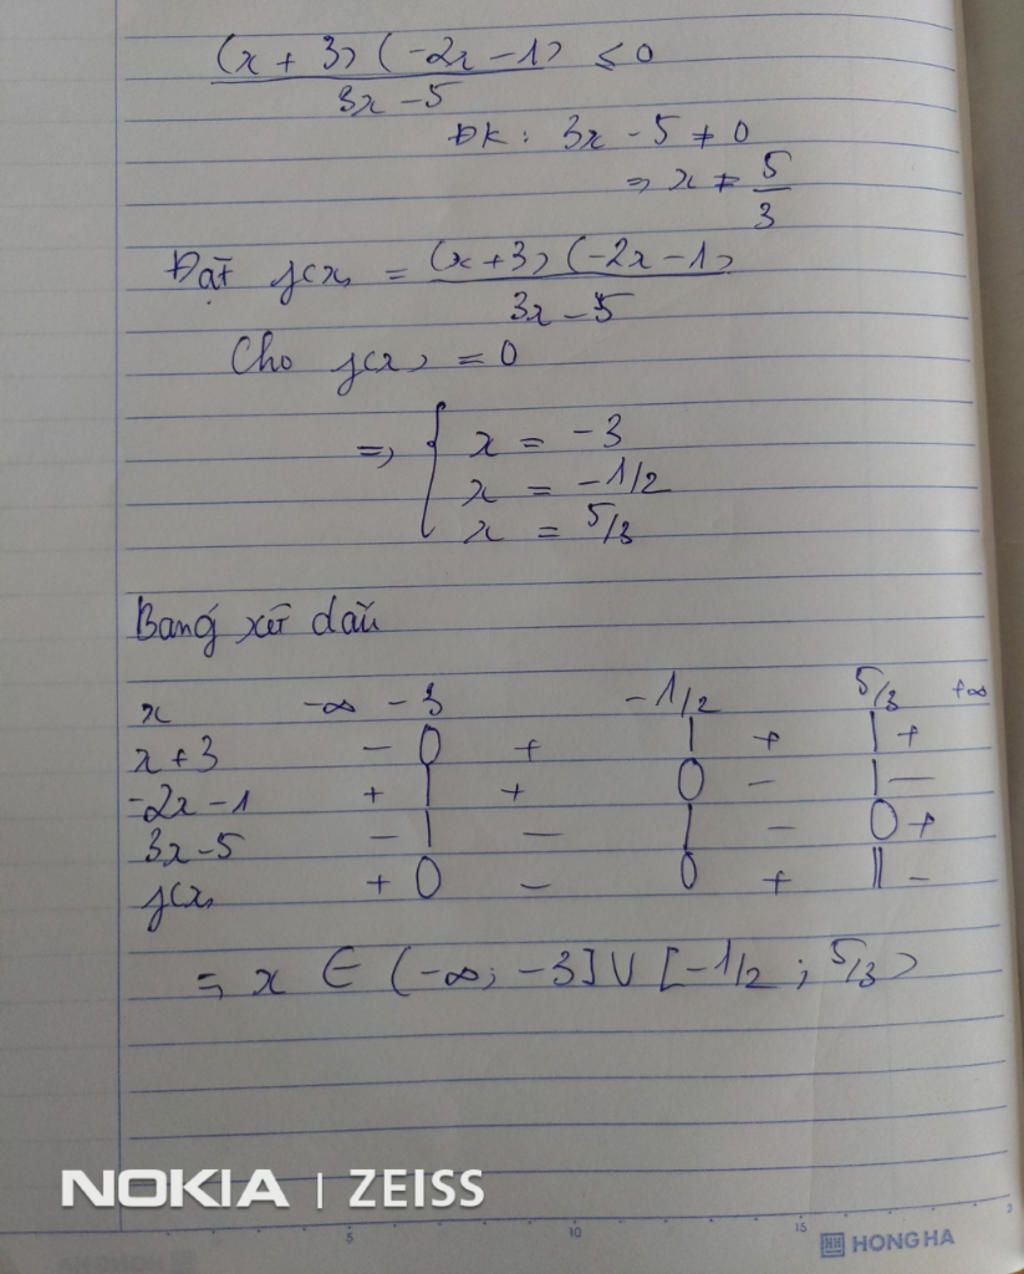 (x + 3) (-2x - 1) ≤ 0
3x - 5
ĐK: 3x - 5 ≠ 0
⇒ x ≠ 5/3
Đặt f(x) = (x+3) (-2x - 1)
3x - 5
Cho f(x) = 0
⇒ { x = -3
x = -1/2
x = 5/3
Bảng xét dấu
x -∞ -3 -1/2 5/3 +∞
x + 3 - 0 + | + | +
-2x - 1 + | + 0 - | -
3x - 5 - | - | - 0 +
f(x) + 0 - 0 + || -
⇒ x ∈ (-∞; -3] ∪ [-1/2; 5/3)
NOKIA | ZEISS
5 10 15
HONG HA